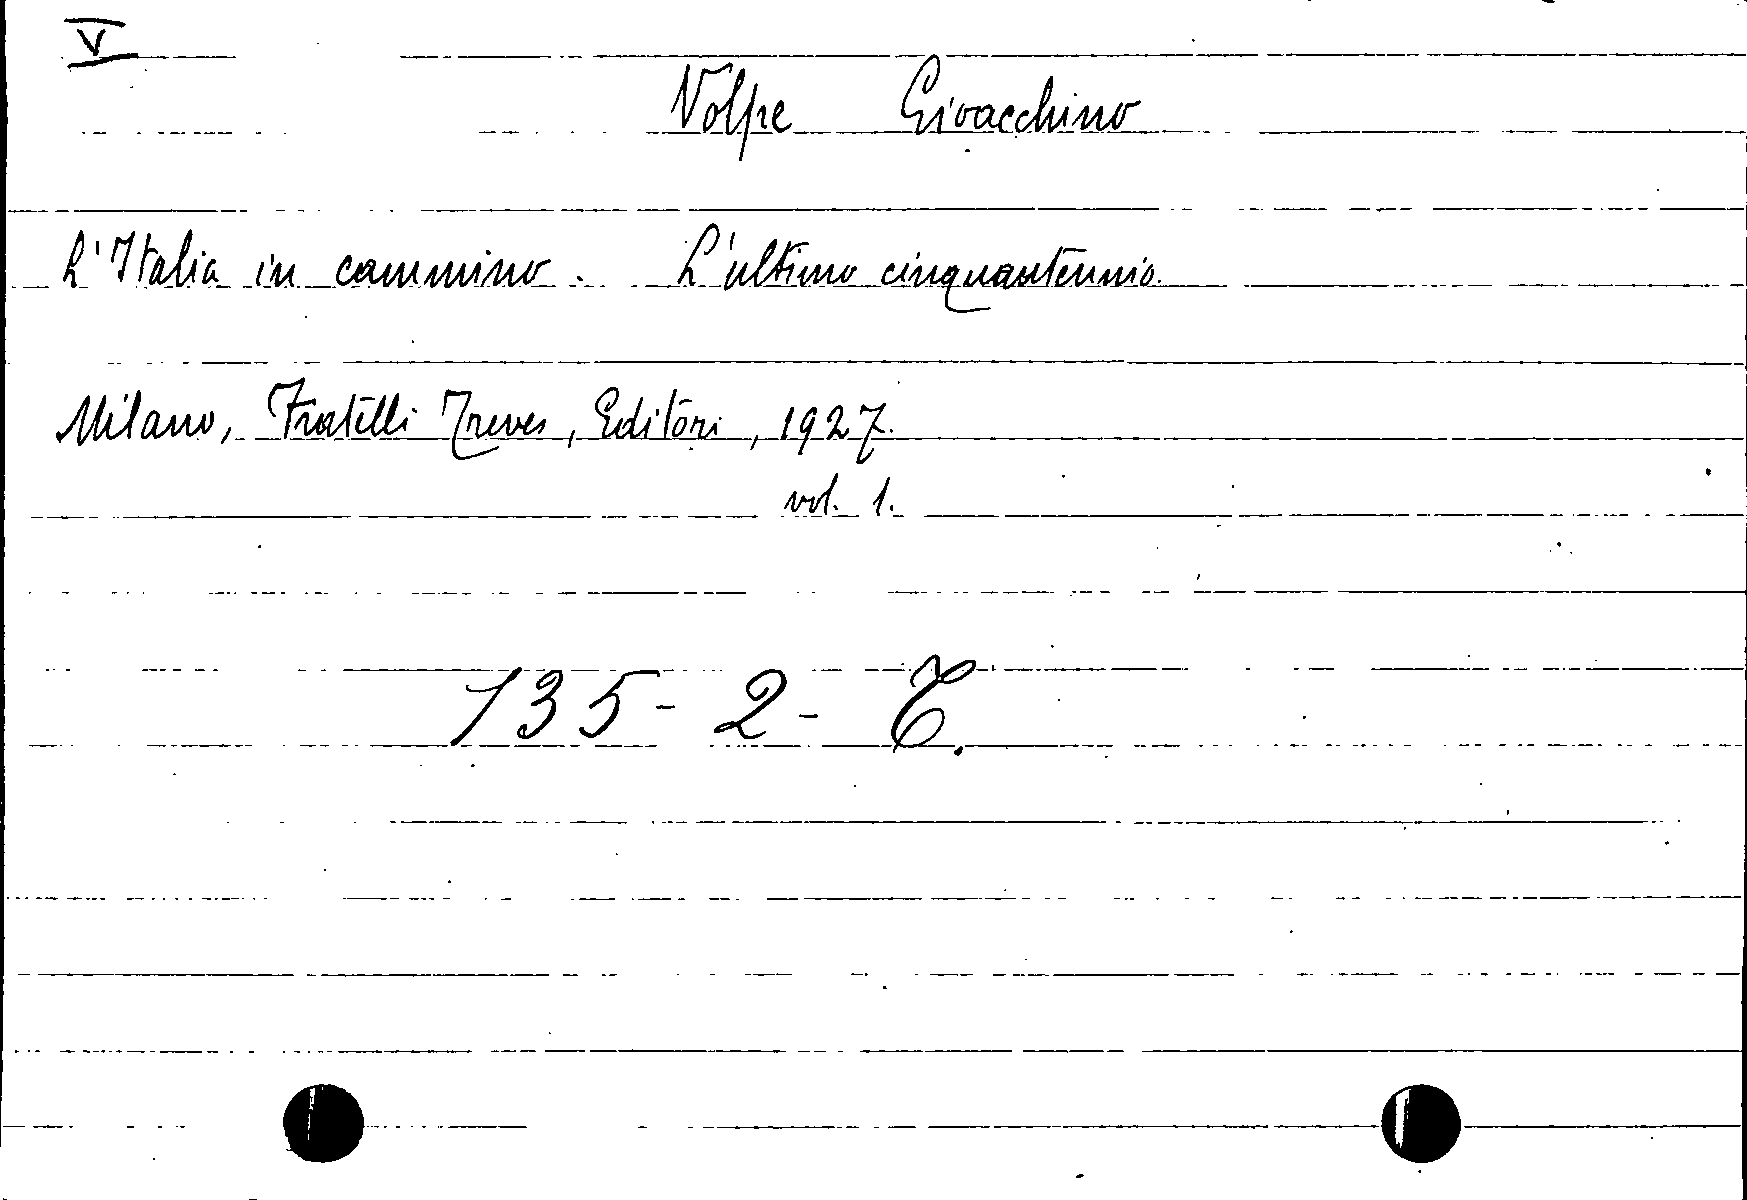 V
Volpe Gioacchino
L'Italia in cammino. L'ultimo cinquantennio.
Milano, Fratelli Treves, Editori, 1927.
vol. 1.
135-2-C.